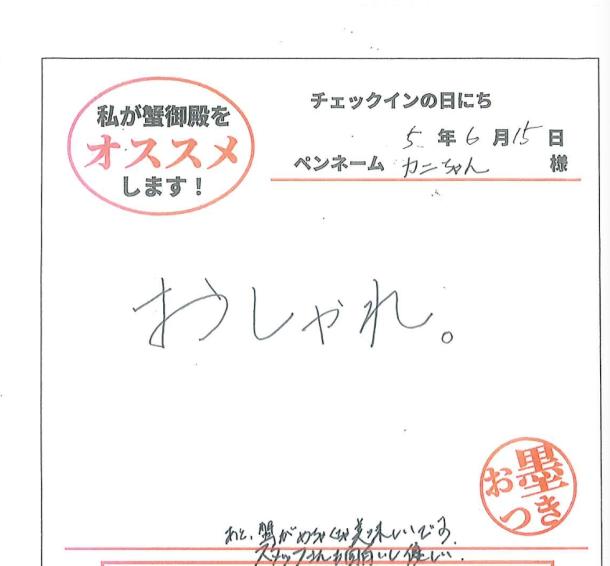 私が蟹御殿を
オススメ
します!
チェックインの日にち
5年6月15日
ペンネーム カニちゃん 様
おしゃれ。
お墨
つき
あと、蟹がめちゃくちゃ美味しいです。
スタッフさんも面白いし優しい。